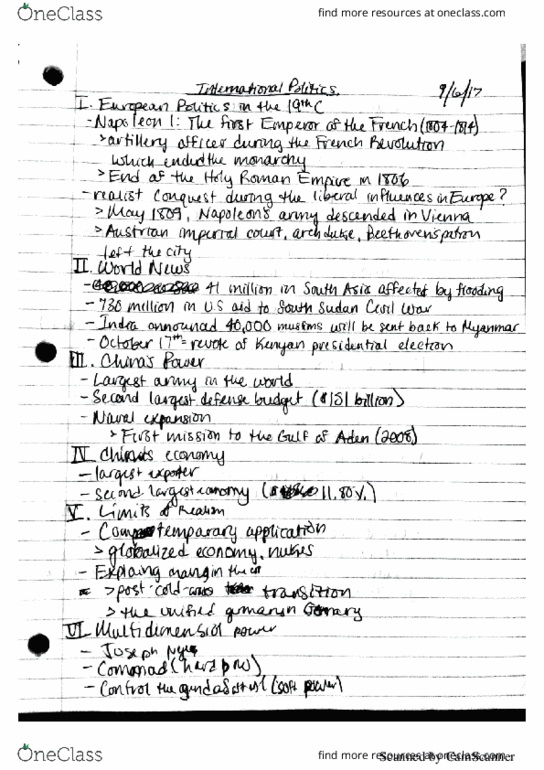 OneClass
find more resources at oneclass.com
International Politics
9/6/17
I. European Politics in the 19th C
- Napoleon I: The First Emperor of the French (1804-1814)
> artillery officer during the French Revolution
which ended the monarchy
> End of the Holy Roman Empire in 1806
- realist conquest during the liberal influences in Europe?
> May 1809, Napoleon's army descended in Vienna
> Austrian imperial court, archduke, Beethoven's patron
left the city
II. World News
- 41 million in South Asia affected by flooding
- 730 million in US aid to South Sudan Civil War
- India announced 40,000 muslims will be sent back to Myanmar
- October 17th = revote of Kenyan presidential election
III. China's Power
- Largest army in the world
- Second largest defense budget ($151 billion)
- Naval expansion
> First mission to the Gulf of Aden (2008)
IV economy
- largest exporter
- second largest economy
V. Limits of Realism
- application
> globalized economy, nukes
- in the
> post-cold transition
> the unified
VI Multidimensial power
- Joseph Nye
- (hard
- Control the (soft power)
OneClass
find more resources at oneclass.com
Scanned by CamScanner